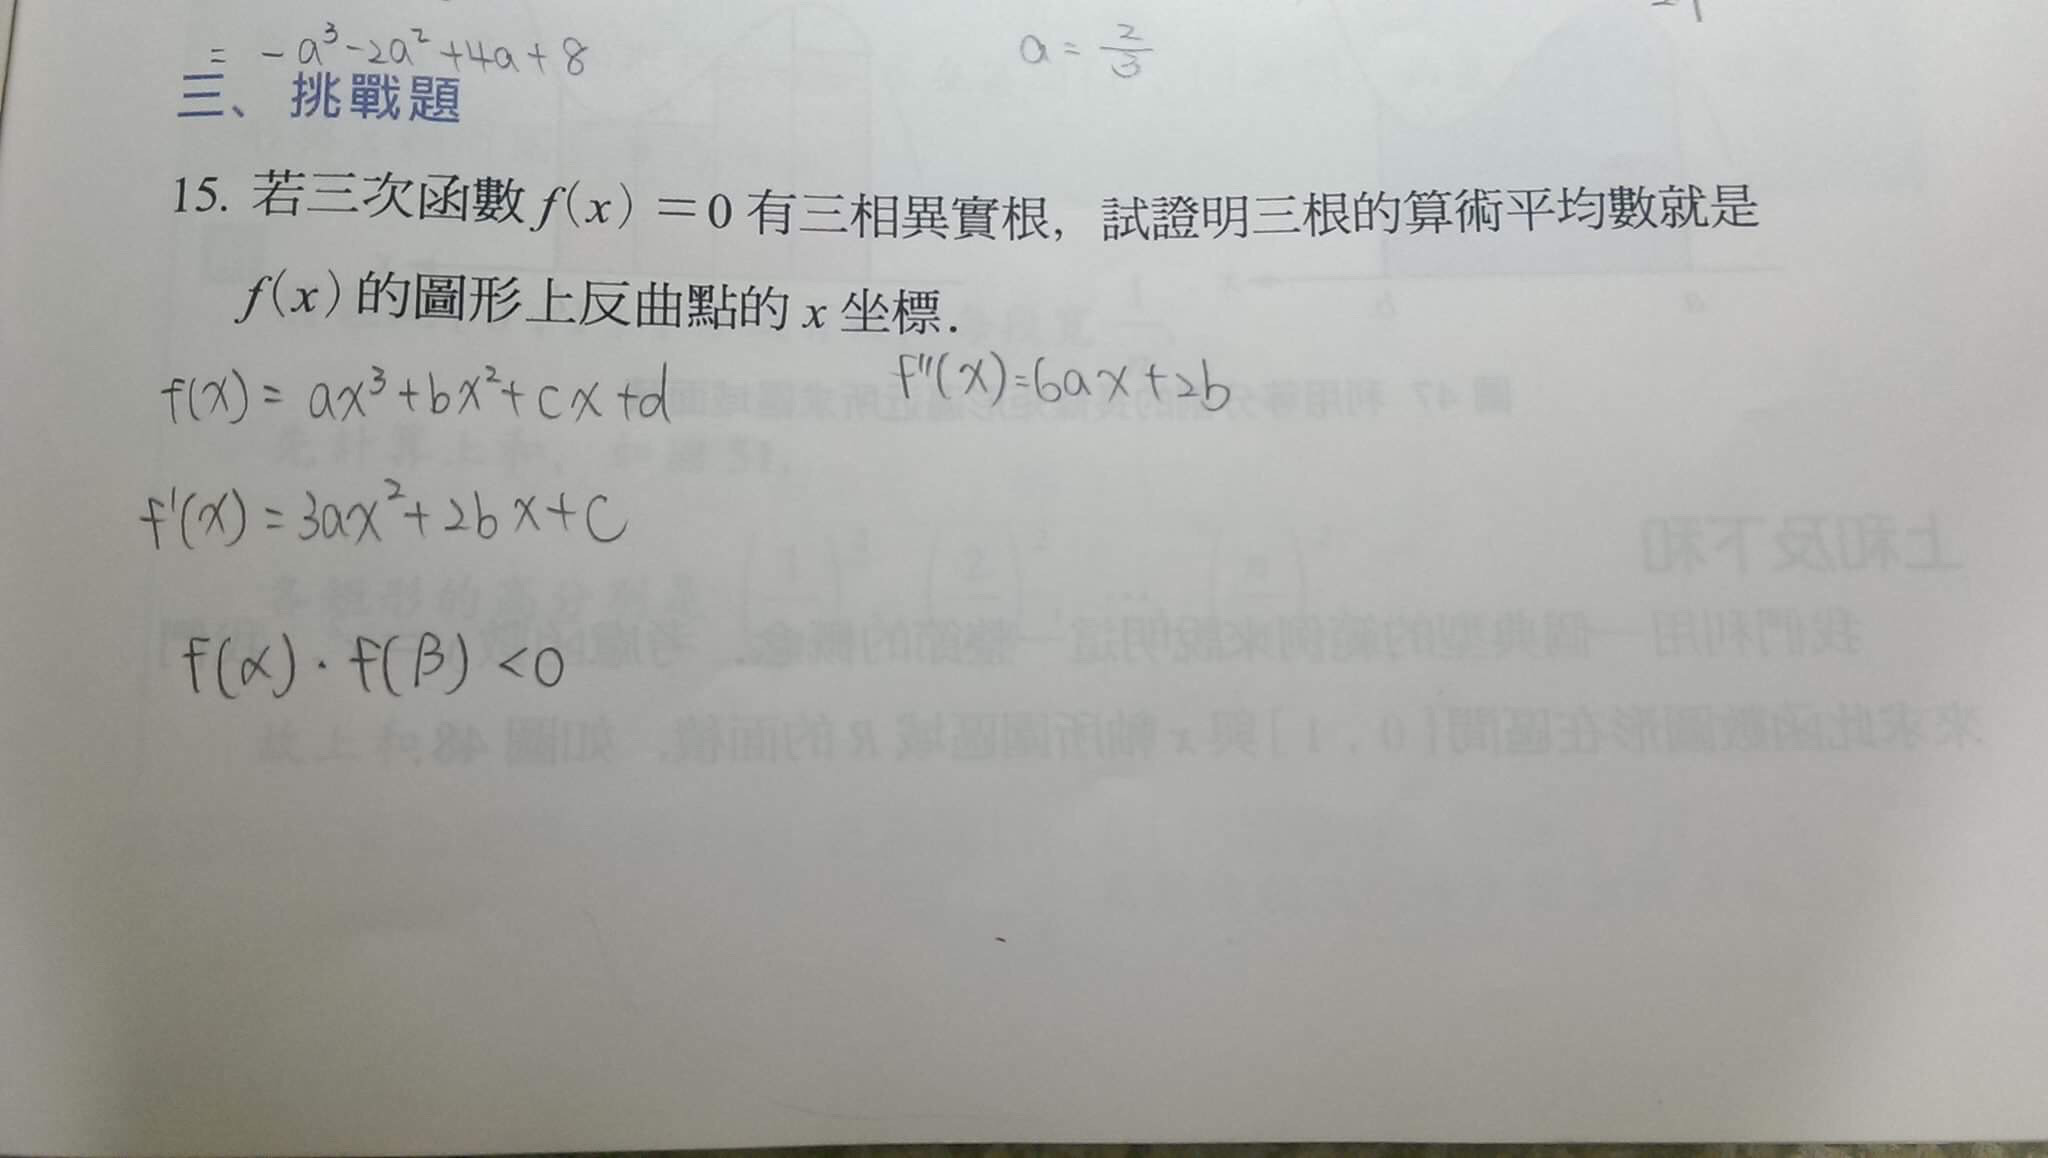 = -a³-2a²+4a+8
a = 2/3
三、挑戰題
15. 若三次函數 f(x)=0 有三相異實根，試證明三根的算術平均數就是
f(x)的圖形上反曲點的 x 坐標.
f(x) = ax³+bx²+cx+d
f''(x)=6ax+2b
f'(x) = 3ax²+2bx+c
f(α)·f(β)<0